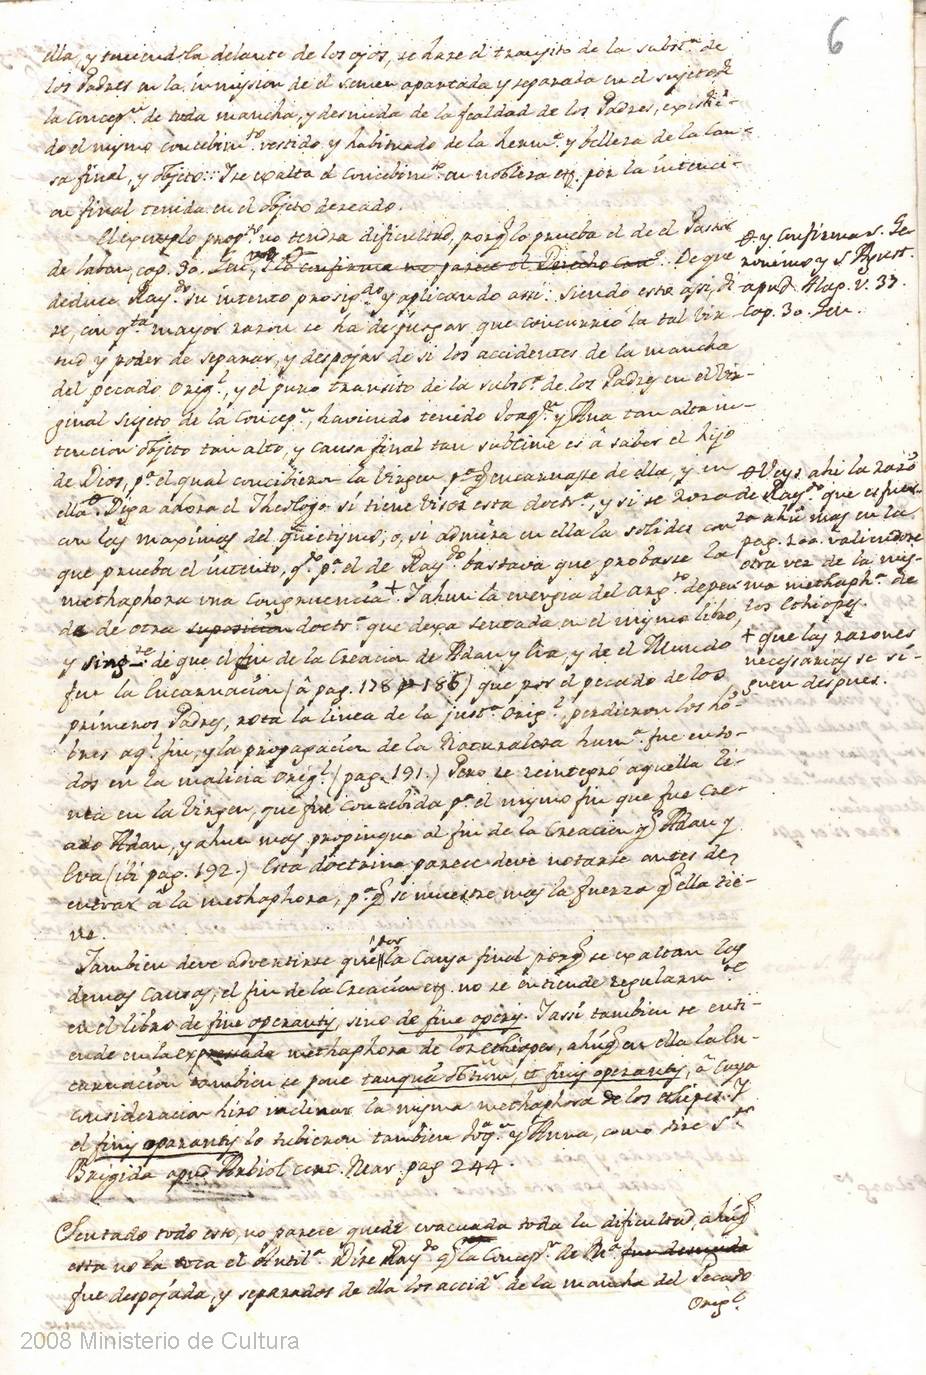 6
ella, y teniendola delante de los ojos, se haze el transito de la subst.ª de
los Padres en la inmission de el semen apartada y separada en el sujeto de
la Concep.n de toda mancha, y desnuda de la fealdad de los Padres, existiẽ-
do el mysmo concebim.to vestido y habituado de la herm.ª y belleza de la Cau-
sa final, y objeto: Y se exalta el concebim.to en nobleza etc. por la intenci-
on final tenida en el objeto deseado.
El exemplo prop.to no tendra dificultad, porq̃ lo prueba el de el Pastor
de laban, cap. 30. Gen. y lo confirma me parece el Derecho De que
deduce Ray.do su intento prosig.do y aplicando assi: siendo esto assi, di-
ze, con q.ta mayor razon se ha de juzgar, que concurriò la tal vir
tud y poder de separar, y despojar de si los accidentes de la mancha
del pecado Orig.l, y el puro transito de la subst.ª de los Padres en el Vir-
ginal sujeto de la Concep.n, haviendo tenido Joaq.n y Ana tan alta in-
tencion objeto tan alto, y causa final tan sublime es â saber el hijo
de Dios, p.ª el qual concibieron la Virgen, p.ª q̃ encarnasse de ella, y en
ella. Diga aòra el Theologo si tiene visos esta doctr.ª, y si se roza
con las maximas del quietismo; o, si admira en ella la solidez con
que prueba el intento, q.do p.ª el de Ray.do bastava que probasse la
methaphora una congruencia +. Y ahun la energia del arg.to depen
de de otra suposicion doctr.ª que dexa sentada en el mysmo libro,
y sing.te de que el fin de la Creacion de Adan y Eva, y de el Mundo
fue la Encarnacion (â pag. 178 186) que por el pecado de los
primeros Padres, rota la linea de la just.ª Orig.l, perdieron los hõ-
bres aq.l fin, y la propagacion de la Naturaleza hum.ª fue en to-
dos en la malicia Orig.l (pag. 191.) Pero se reintegrò aquella li-
nea en la Virgen, que fue concebida p.ª el mysmo fin que fue cre-
ado Adan, y ahun mas propinqua al fin de la Creacion q̃ Adan y
Eva (ibi pag. 192.) Esta doctrina parece deve notarse antes de
entrar â la methaphora, p.ª q̃ se muestre mas la fuerza q̃ ella tie-
ne.
Tambien deve advertirse que por la Causa final porq̃ se exaltan las
demas causas; el fin de la Creacion etc. no se entiende regularm.te
en el libro de fine operantis, sino de fine operis. Y assi tambien se enti-
ende en la expressada methaphora de los Ethiopes, ahũq̃ en ella la En-
carnacion tambien se pone tanquã obiectũ, et finis operantis, â cuya
consideracion hizo inclinar la mysma methaphora de los Ethiopes. Y
el finis operantis lo tubieron tambien Joaq.n y Anna, como dize S.ta
Brigida apud Arbiol cert. Mar. pag 244.
Sentado todo esto, no parece quede evacuada toda la dificultad, ahũq̃
esta no la toca el Dize Ray.do q̃ la Concep.n de N.ª fue desnuda
fue despojada, y separados de ella los accid.s de la mancha del Pecado
Orig.l
y confirman S. Ge
ronimo y S. August.
apud Alap. v. 37.
cap. 30. Gen.
Veys ahi la razõ
de Ray.do que esfuer-
za ahũ mas en la
pag. 200. valiendose
otra vez de la mis-
ma methaph.ª de
los Ethiopes.
+ que las razones
necessarias se si-
guen despues.
2008 Ministerio de Cultura